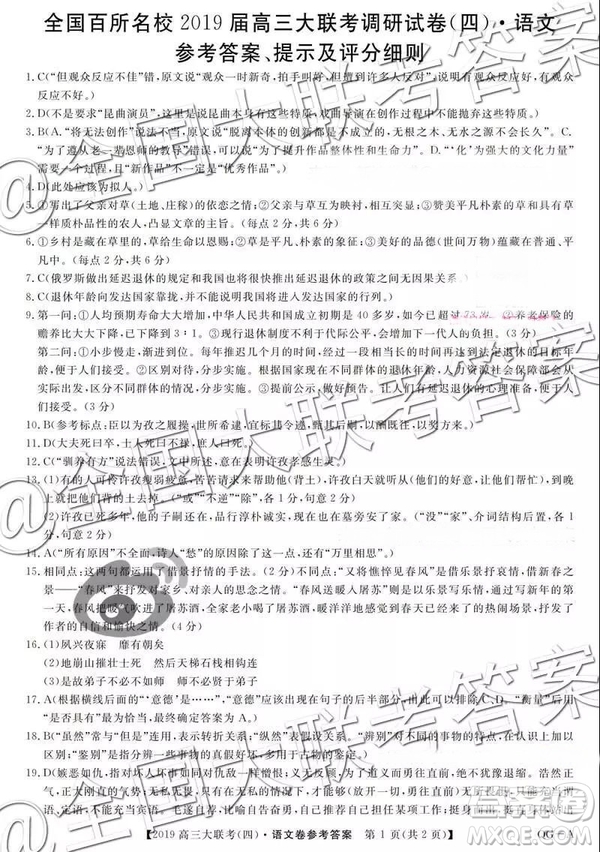 全国百所名校 2019 届高三大联考调研试卷(四)·语文
参考答案、提示及评分细则
1.C(“但观众反应不佳”错,原文说“观众一时新奇,自然也遭到许多人反对”,说明有观众反对,但不能说观众
反应不好。)
2.D(不是要求“昆曲演员”,这里说的是昆曲本身存在有这些特质,戏曲也有这些特质。)
3.B(A.“将无法创作”说法不当,原文说“脱离本体的创新永远不会长久”,并不是不脱离本体就不会长久。C.
“为了遵从老一辈恩师的教导”错误,原文说“为了提升作品整体性和生命力”。D.“‘化’为强大的文化力量”
需要一个过程,并且不是“新作品”而是“优秀作品”。)
4.D(此处应该为拟人。)
5.①写出了作者对乡村(土地、庄稼)的依恋之情;②表达了作者对平凡、朴素的草的喜爱;③赞美平凡却有和草
一样质朴性格的农人,凸显文章的主旨。(每点2分,共6分)
6.①乡村是藏在草里的,生态环境自然原始;②草是平凡、朴素的象征;③美好的品德(世间万物)也是朴素平
凡。(每点2分,共6分)
7.C(俄罗斯做出延迟退休年龄和我国推出延迟退休的政策之间无因果关系。)
8.C(退休年龄向发达国家靠拢,并不能说与发达国家一致。)
9.第一问:①人均预期寿命大大增加,中华人民共和国成立初期是 40 多岁,如今超过
赡养比大大下降,已经变成 3∶1。③现实退休制度不利于代际公平,会增加下一代人的负担。(3分)
第二问:①小步慢走,渐进到位。每年推几个月的时间,经过相当长的时间再达到法定退休的目标年龄。②区
分对待,分步实施。根据我国现在不同群体的退休年龄实际情况区分对待,从现在退休年龄最低的群体开始,
逐步实施。③提前公示,做好预告。在方案出台前,广泛听取和吸收各个方面意见,人力资源社会保障部会在
实施延迟退休前几年将方案提前向社会进行预告,让人们在退休前有几年的时间做延迟退休的心理准备,便于
人们接受。(3分)
10.B(参考标点:臣以为孜之履操,世所希逮,宜标其令迹,甄其后嗣。)
11.D(大夫死曰卒,士人死曰不禄,庶人死曰死。)
12.C(“驯养有方”说法错误,文中所述,意在表明许孜孝感生灵。)
13.(1)有的人可怜许孜瘦弱疲惫,苦苦请求来帮助他,许孜白天就听从(他们),不违逆(他们),到夜晚,便将他
们带来、为他们背的土去掉。(5分)
(2)许孜死之后,他的子嗣还在,供奉神灵的许孜的房屋没有破败。(“没”“家”、介词结构后置各 1 分,句意
2分)
14.A(“所有原因”不全面,诗人“愁”的表现,也引用了“万里来”。)
15.相同点:这两句都运用了借景抒情的手法。(2分)不同点:“又将憔悴见春风”借乐景写哀情,用春景的美好反
“春风送暖入屠苏”则是以乐景写乐情,通过写新的一年
里,春风把暖意吹进了屠苏酒,全家老小喝了屠苏酒,暖洋洋地感觉到春天已经来了的景象,表现了作者的自
信和愉快之情。(4分)
16.(1)夙兴夜寐 靡有朝矣
(2)地崩山摧壮士死 然后天梯石栈相钩连
(3)是故弟子不必不如师 师不必贤于弟子
17.A(根据横线后面的“意德”是……,“意德”应该出现在句子的后半部分,由此可以排除 C、D。“衡量”后面
用“或者说”更为恰当,最终确定答案为 A。)
18.B(“虽然”表示让步,表示转折关系;“纵然”表假设关系。“区分”对不同的事物的特点进行比较,从而加以
区别;“鉴别”是指经过一番考察之后,对相似的不同的事物区别开来,多用于古物的鉴定。)
19.D(嫉恶如仇,指对坏人坏事如同对仇敌一样憎恨。义无反顾,从道义上只有勇往直前,绝不能犹豫退缩。潸
然泪下,形容人的眼泪流下来,形容因有所感触而流泪。愚昧无知,形容又愚笨又不明事理,贬义词,使用不当。
2019高三大联考(四)·语文卷参考答案 第1页(共2页)
QG-A
@全国大联考答案